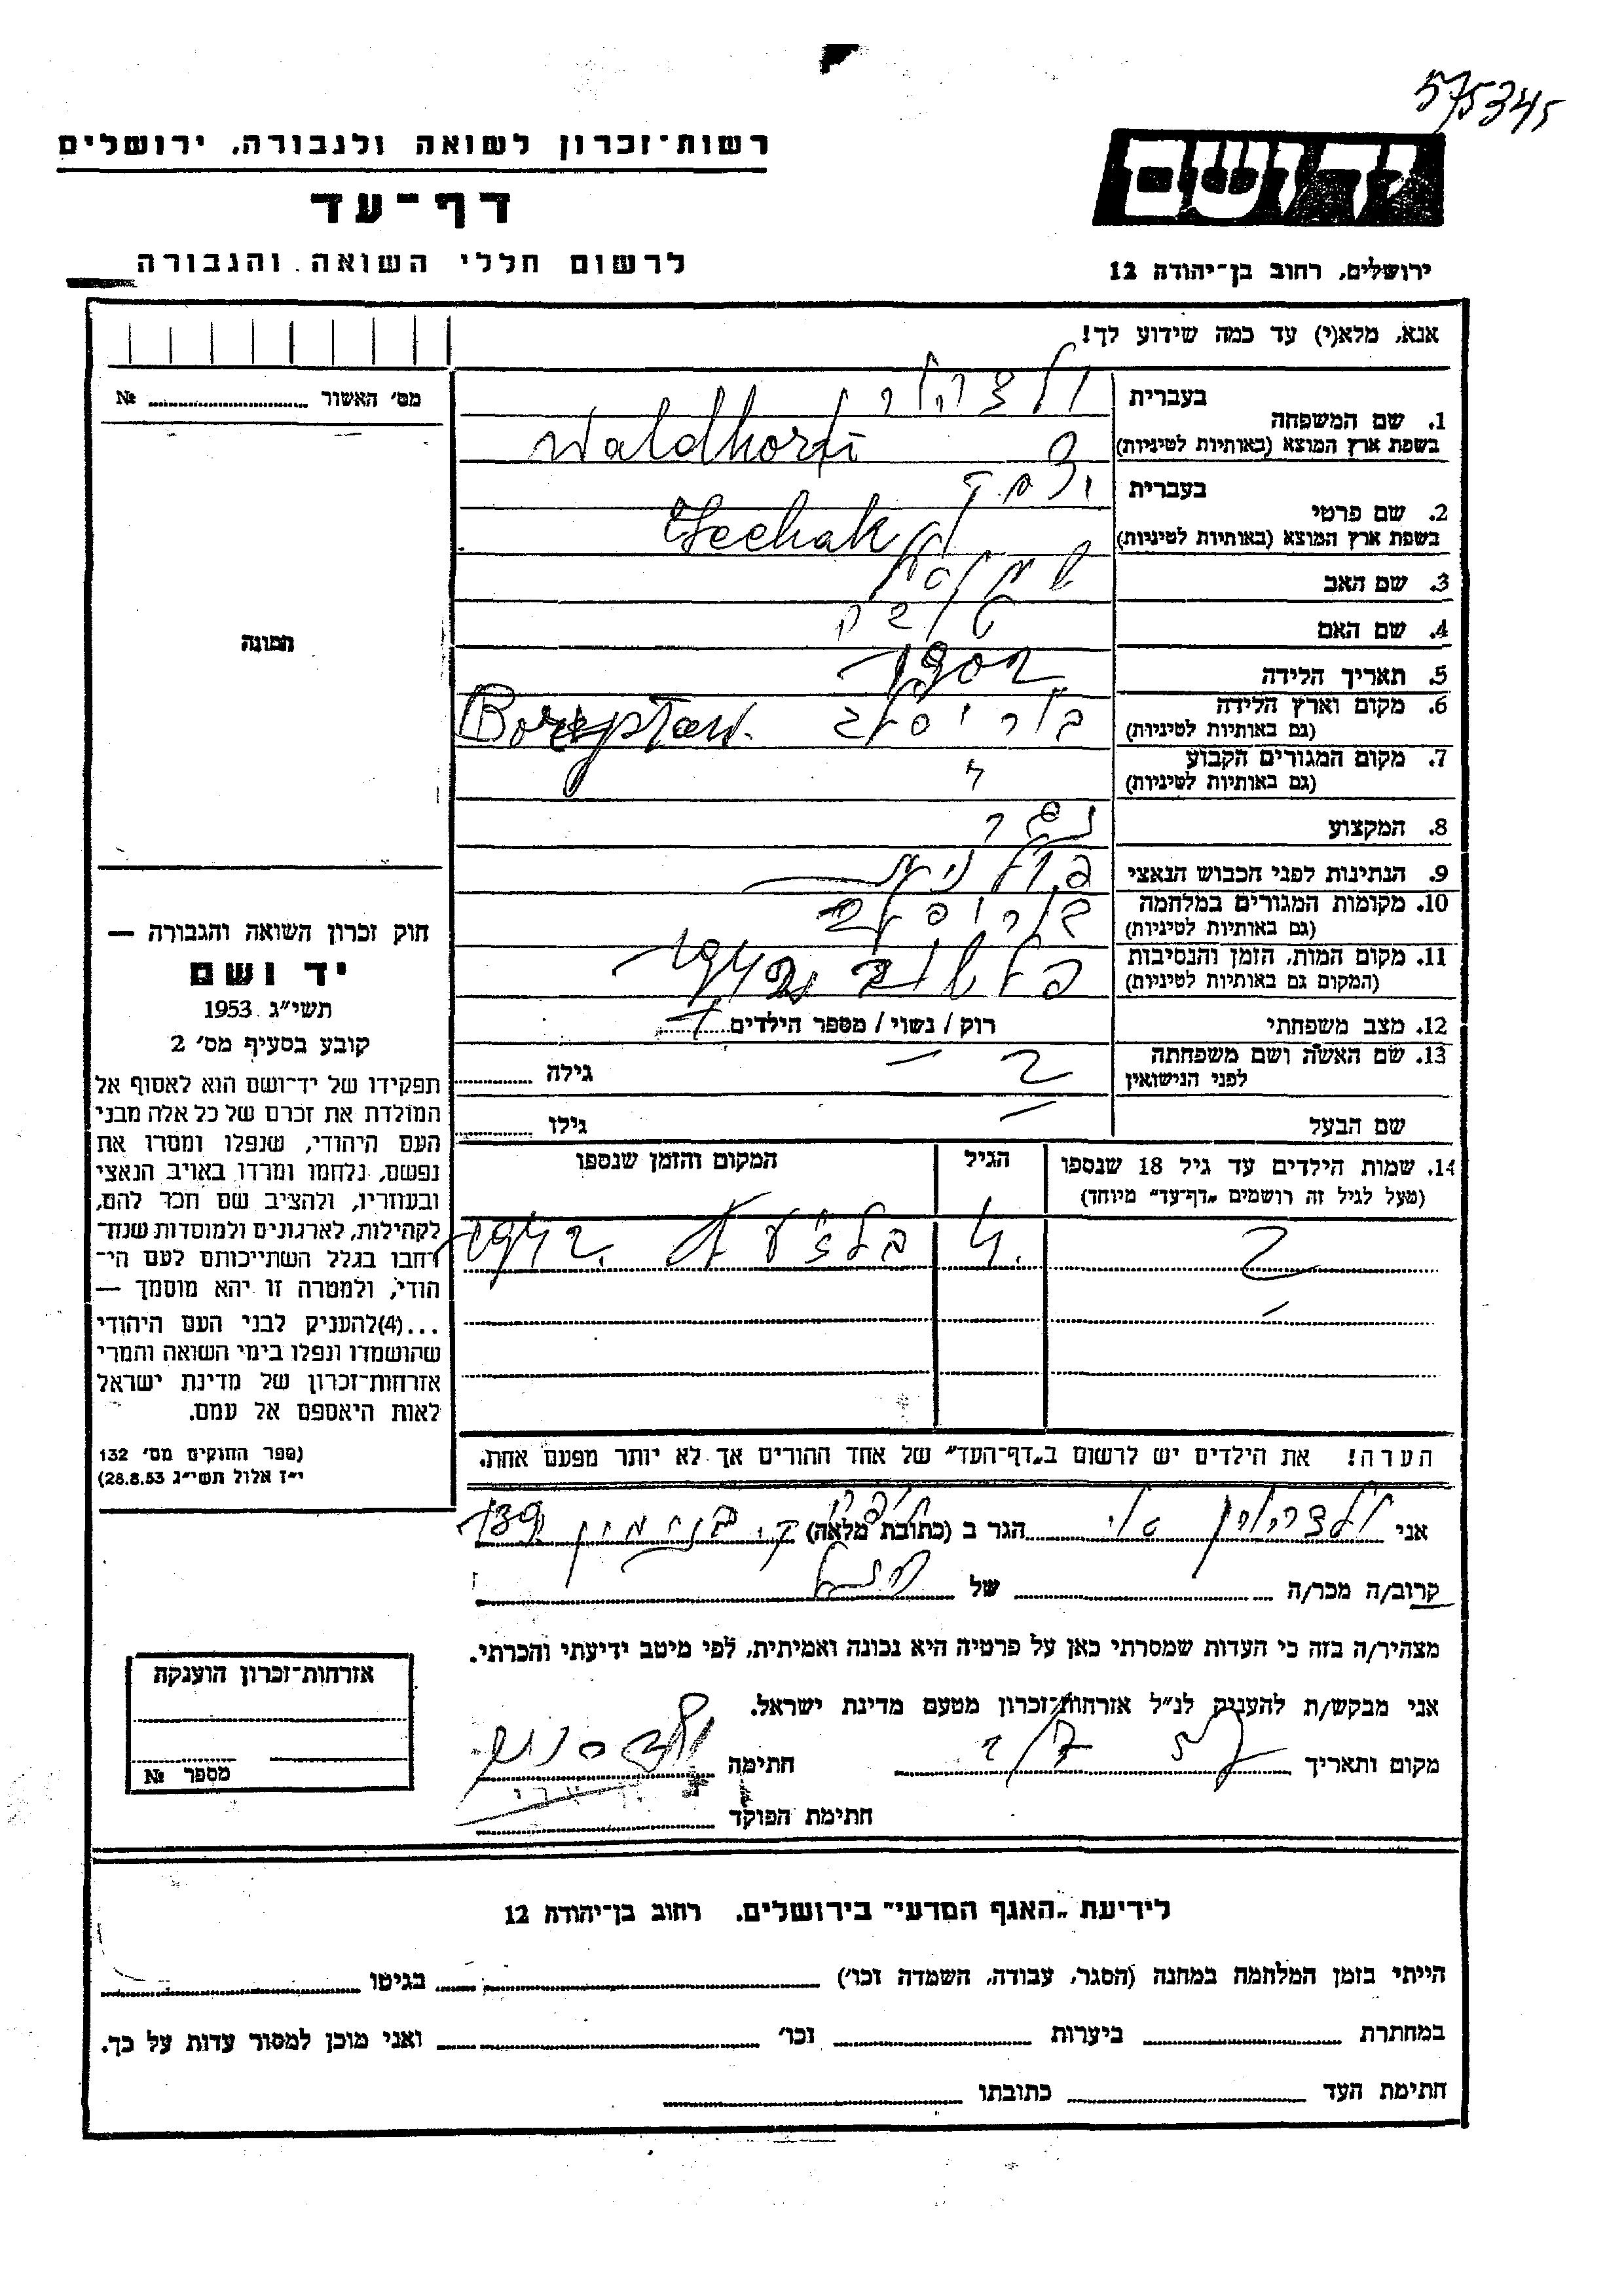 575345
רשות־זכרון לשואה ולגבורה, ירושלים
יד ושם
דף־עד
לרשום חללי השואה והגבורה
ירושלים, רחוב בן־יהודה 12
אנא, מלא(י) עד כמה שידוע לך!
מס׳ האשור № 
1. שם המשפחה
בעברית
בשפת ארץ המוצא (באותיות לטיניות)
Waldhorn
2. שם פרטי
בעברית יצחק
בשפת ארץ המוצא (באותיות לטיניות)
3. שם האב
4. שם האם
5. תאריך הלידה 1902
6. מקום וארץ הלידה
(גם באותיות לטיניות)
בוריסלב
7. מקום המגורים הקבוע
(גם באותיות לטיניות)
"
8. המקצוע
נגר
9. הנתינות לפני הכבוש הנאצי
פולנית
10. מקומות המגורים במלחמה
(גם באותיות לטיניות)
בוריסלב
11. מקום המות, הזמן והנסיבות
(המקום גם באותיות לטיניות)
1942
12. מצב משפחתי
רוק / נשוי / מספר הילדים
13. שם האשה ושם משפחתה
לפני הנישואין
גילה
שם הבעל
גילו
14. שמות הילדים עד גיל 18 שנספו
(מעל לגיל זה רושמים „דף־עד״ מיוחד)
הגיל
המקום והזמן שנספו
1942
הערה! את הילדים יש לרשום ב„דף־העד״ של אחד ההורים אך לא יותר מפעם אחת.
תמונה
חוק זכרון השואה והגבורה —
יד ושם
תשי״ג 1953
קובע בסעיף מס׳ 2
תפקידו של יד־ושם הוא לאסוף אל
המולדת את זכרם של כל אלה מבני
העם היהודי, שנפלו ומסרו את
נפשם, נלחמו ומרדו באויב הנאצי
ובעוזריו, ולהציב שם וזכר להם,
לקהילות, לארגונים ולמוסדות שנח־
רבו בגלל השתייכותם לעם הי־
הודי, ולמטרה זו יהא מוסמך —
...(4)להעניק לבני העם היהודי
שהושמדו ונפלו בימי השואה והמרי
אזרחות־זכרון של מדינת ישראל
לאות היאספם אל עמם.
(ספר החוקים מס׳ 132
י״ז אלול תשי״ג 28.8.53)
אני
הגר ב (כתובת מלאה)
139
קרוב/ה מכר/ה
של
מצהיר/ה בזה כי העדות שמסרתי כאן על פרטיה היא נכונה ואמיתית, לפי מיטב ידיעתי והכרתי.
אני מבקש/ת להעניק לנ״ל אזרחות־זכרון מטעם מדינת ישראל.
מקום ותאריך
חתימה
חתימת הפוקד
אזרחות־זכרון הוענקה
מספר №
לידיעת „האגף המדעי״ בירושלים, רחוב בן־יהודה 12
הייתי בזמן המלחמה במחנה (הסגר, עבודה, השמדה וכו׳)
בגיטו
במחתרת
ביערות
וכו׳
ואני מוכן למסור עדות על כך.
חתימת העד
כתובתו